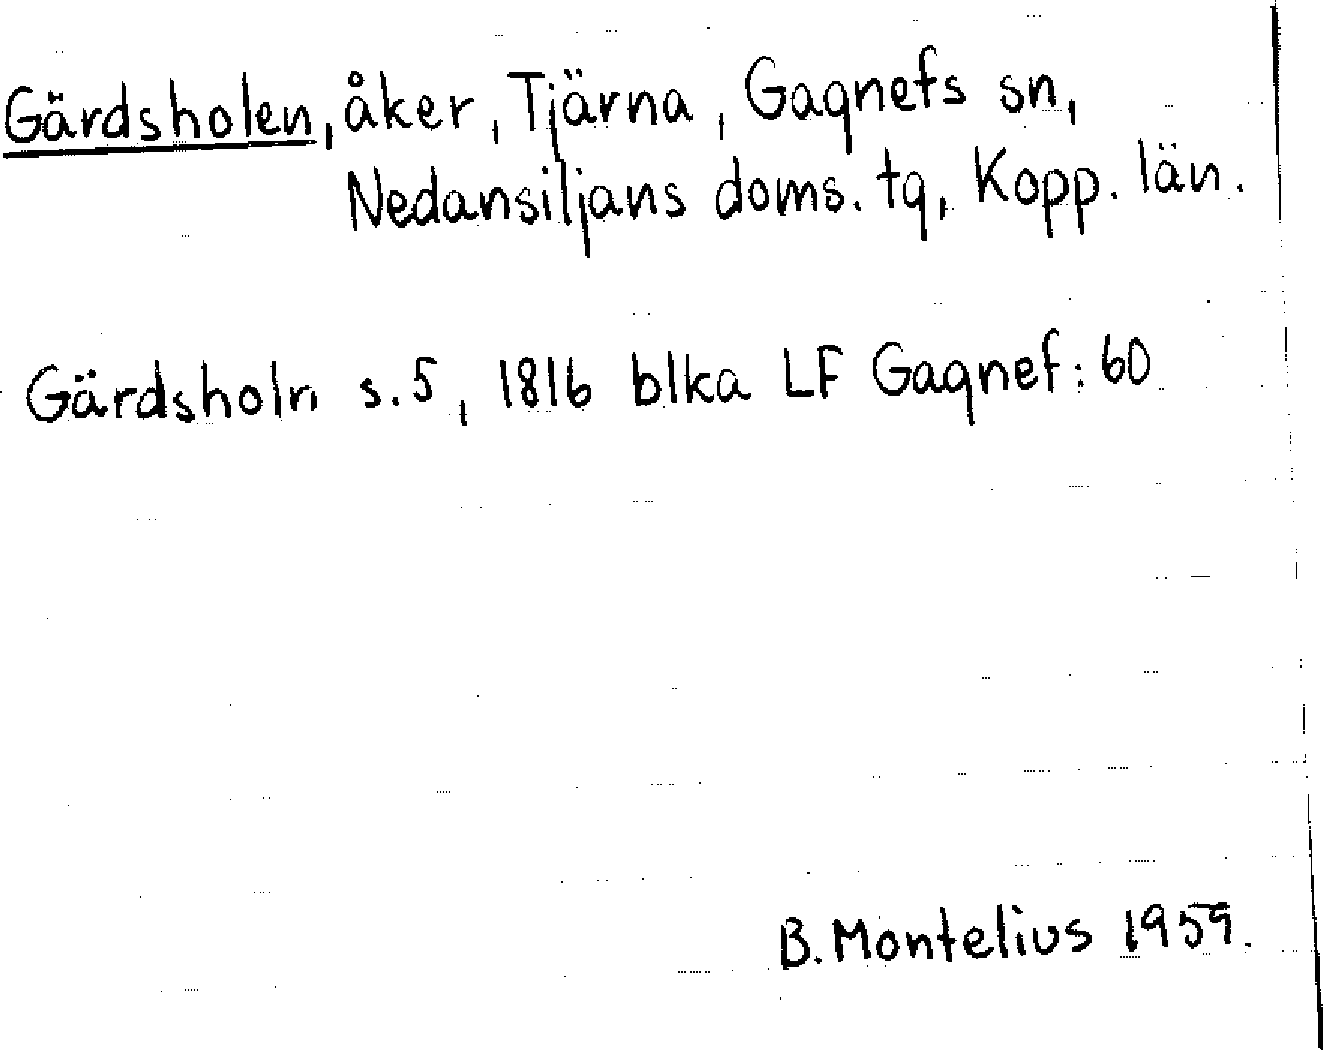 Gärdsholen, åker, Tjärna, Gagnefs sn,
Nedansiljans doms. tg, Kopp. län.
Gärdsholn s.5, 1816 blka LF Gagnef: 60
B. Montelius 1959.